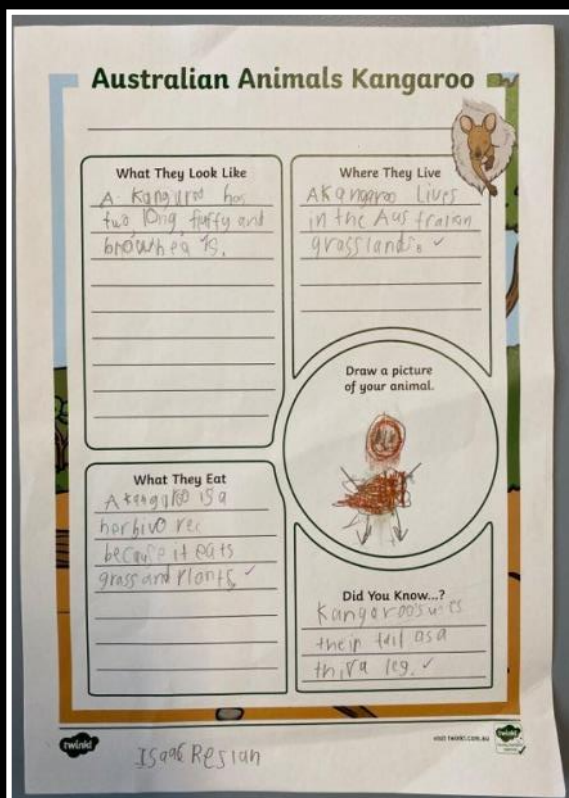 Australian Animals Kangaroo
What They Look Like
A Kangaroo has
two, long, fluffy and
brown ears.
Where They Live
A Kangaroo Lives
in the Australian
grasslands. ✓
Draw a picture
of your animal.
What They Eat
A kangaroo is a
herbivorec
because it eats
grass and Plants. ✓
Did You Know...?
Kangaroo's
their tail as a
third leg. ✓
twinkl
visit twinkl.com.au
twinkl
Isaac Resian